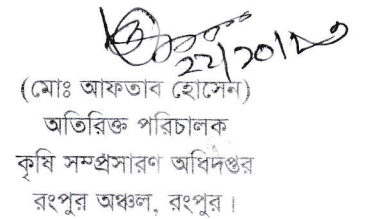 ২২/১০/২৩
(মোঃ আফতাব হোসেন)
অতিরিক্ত পরিচালক
কৃষি সম্প্রসারণ অধিদপ্তর
রংপুর অঞ্চল, রংপুর।